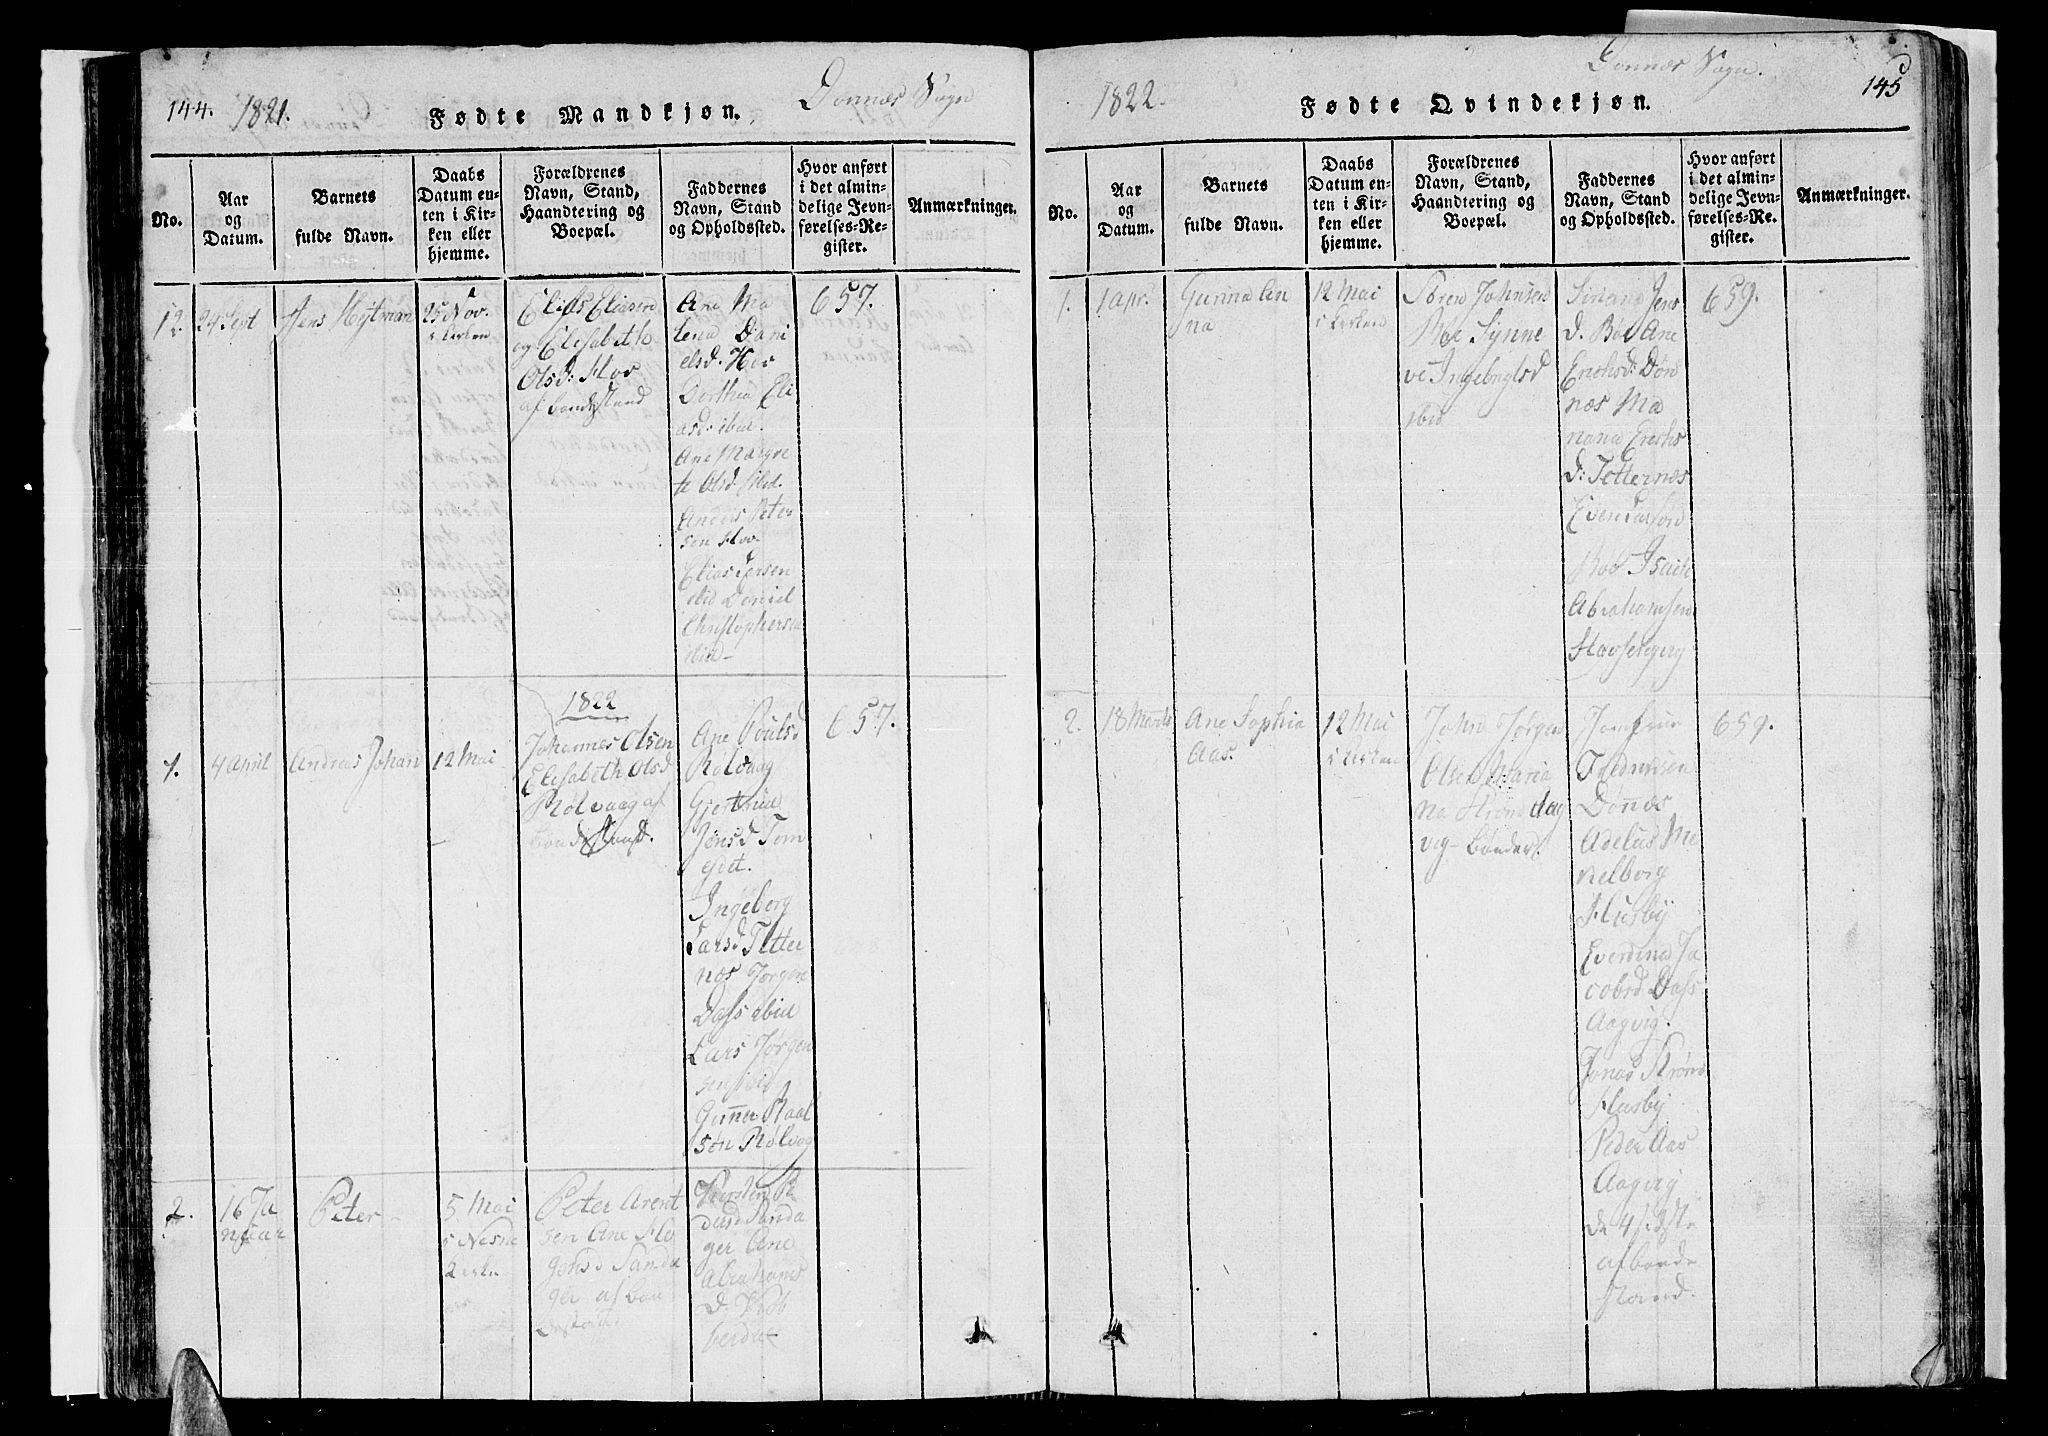 144. 1821. Fødte Mandkjøn. Dønnæs Sogn
No.
Aar
og
Datum.
Barnets
fulde Navn.
Daabs
Datum en-
ten i Kir-
ken eller
hjemme.
Forældrenes
Navn, Stand,
Haandtering og
Boepæl.
Faddernes
Navn, Stand
og Opholdssted.
Hvor anført
i det almin-
delige Jevn-
førelses-Re-
gister.
Anmærkninger.
12.
24 Sept
Jens Hejtman
25 Nov.
i kirken
Elias Eliasen
og Elisabeth
Olsd: Hov
af bondestand
Ane Ma
lena Dani
elsd. Hov
Dorthea Eli
asd: ibid.
Ane Margre
te Olsd
Anders Peter
sen Hov
Elias
ibid Daniel
Christophersen
ibid
657.
1822
1.
4 April
Andreas Johan
12 Mai
Johannes Olsen
Elisabeth Olsd
Rølvaag af
bondestand.
Ane Poulsd
Rølvaag
Gjertrud
Jensd Tom
ejdet.
Ingeborg
Larsd Tetter
næs Jørgen
Dass ibid
Lars Jørgen
sen ibid
Gunner Raal
søn Rølvog
657.
2.
16 Ja
nuar
Peter
5 Mai
i Nesne
kirke
Peter Arent
sen Ane Ho
gensd Landa
ger af bon
destand
P
ders Landa
ger Ane
Abrahams
D.
1822. Fødte Qvindekjøn. Dønnæs Sogn. 145
No.
Aar
og
Datum.
Barnets
fulde Navn.
Daabs
Datum en-
ten i Kir-
ken eller
hjemme.
Forældrenes
Navn, Stand,
Haandtering og
Boepæl.
Faddernes
Navn, Stand
og Opholdssted.
Hvor anført
i det almin-
delige Jevn-
førelses-Re-
gister.
Anmærkninger.
1.
1 Apr.
Gurina An
na
12 Mai
i kirken
Søren Johnsen
Synne
ve Ingebrigtsd
ibid
Jens
d. Bøe Ane
Erichsd: Døn
næs Ma
riana Erichs
D: Tetternæs
Even
Bøe Isach
Abrahamsen
659.
2.
18 Marts
Ane Sophia
Aas.
12 Mai
i kirken
John Jørgen
Olsen Maria
na Strøm dag
vig- bønder
Jomfrue
Fredriksen
Dønnæs
Adelus Me
Husby
Everdina Ja
cobsd Dass
Aagvig.
Jonas Strøm
Husby
Peder Aas
Aagvig
de 4 sidste
af bonde
stand.
659.